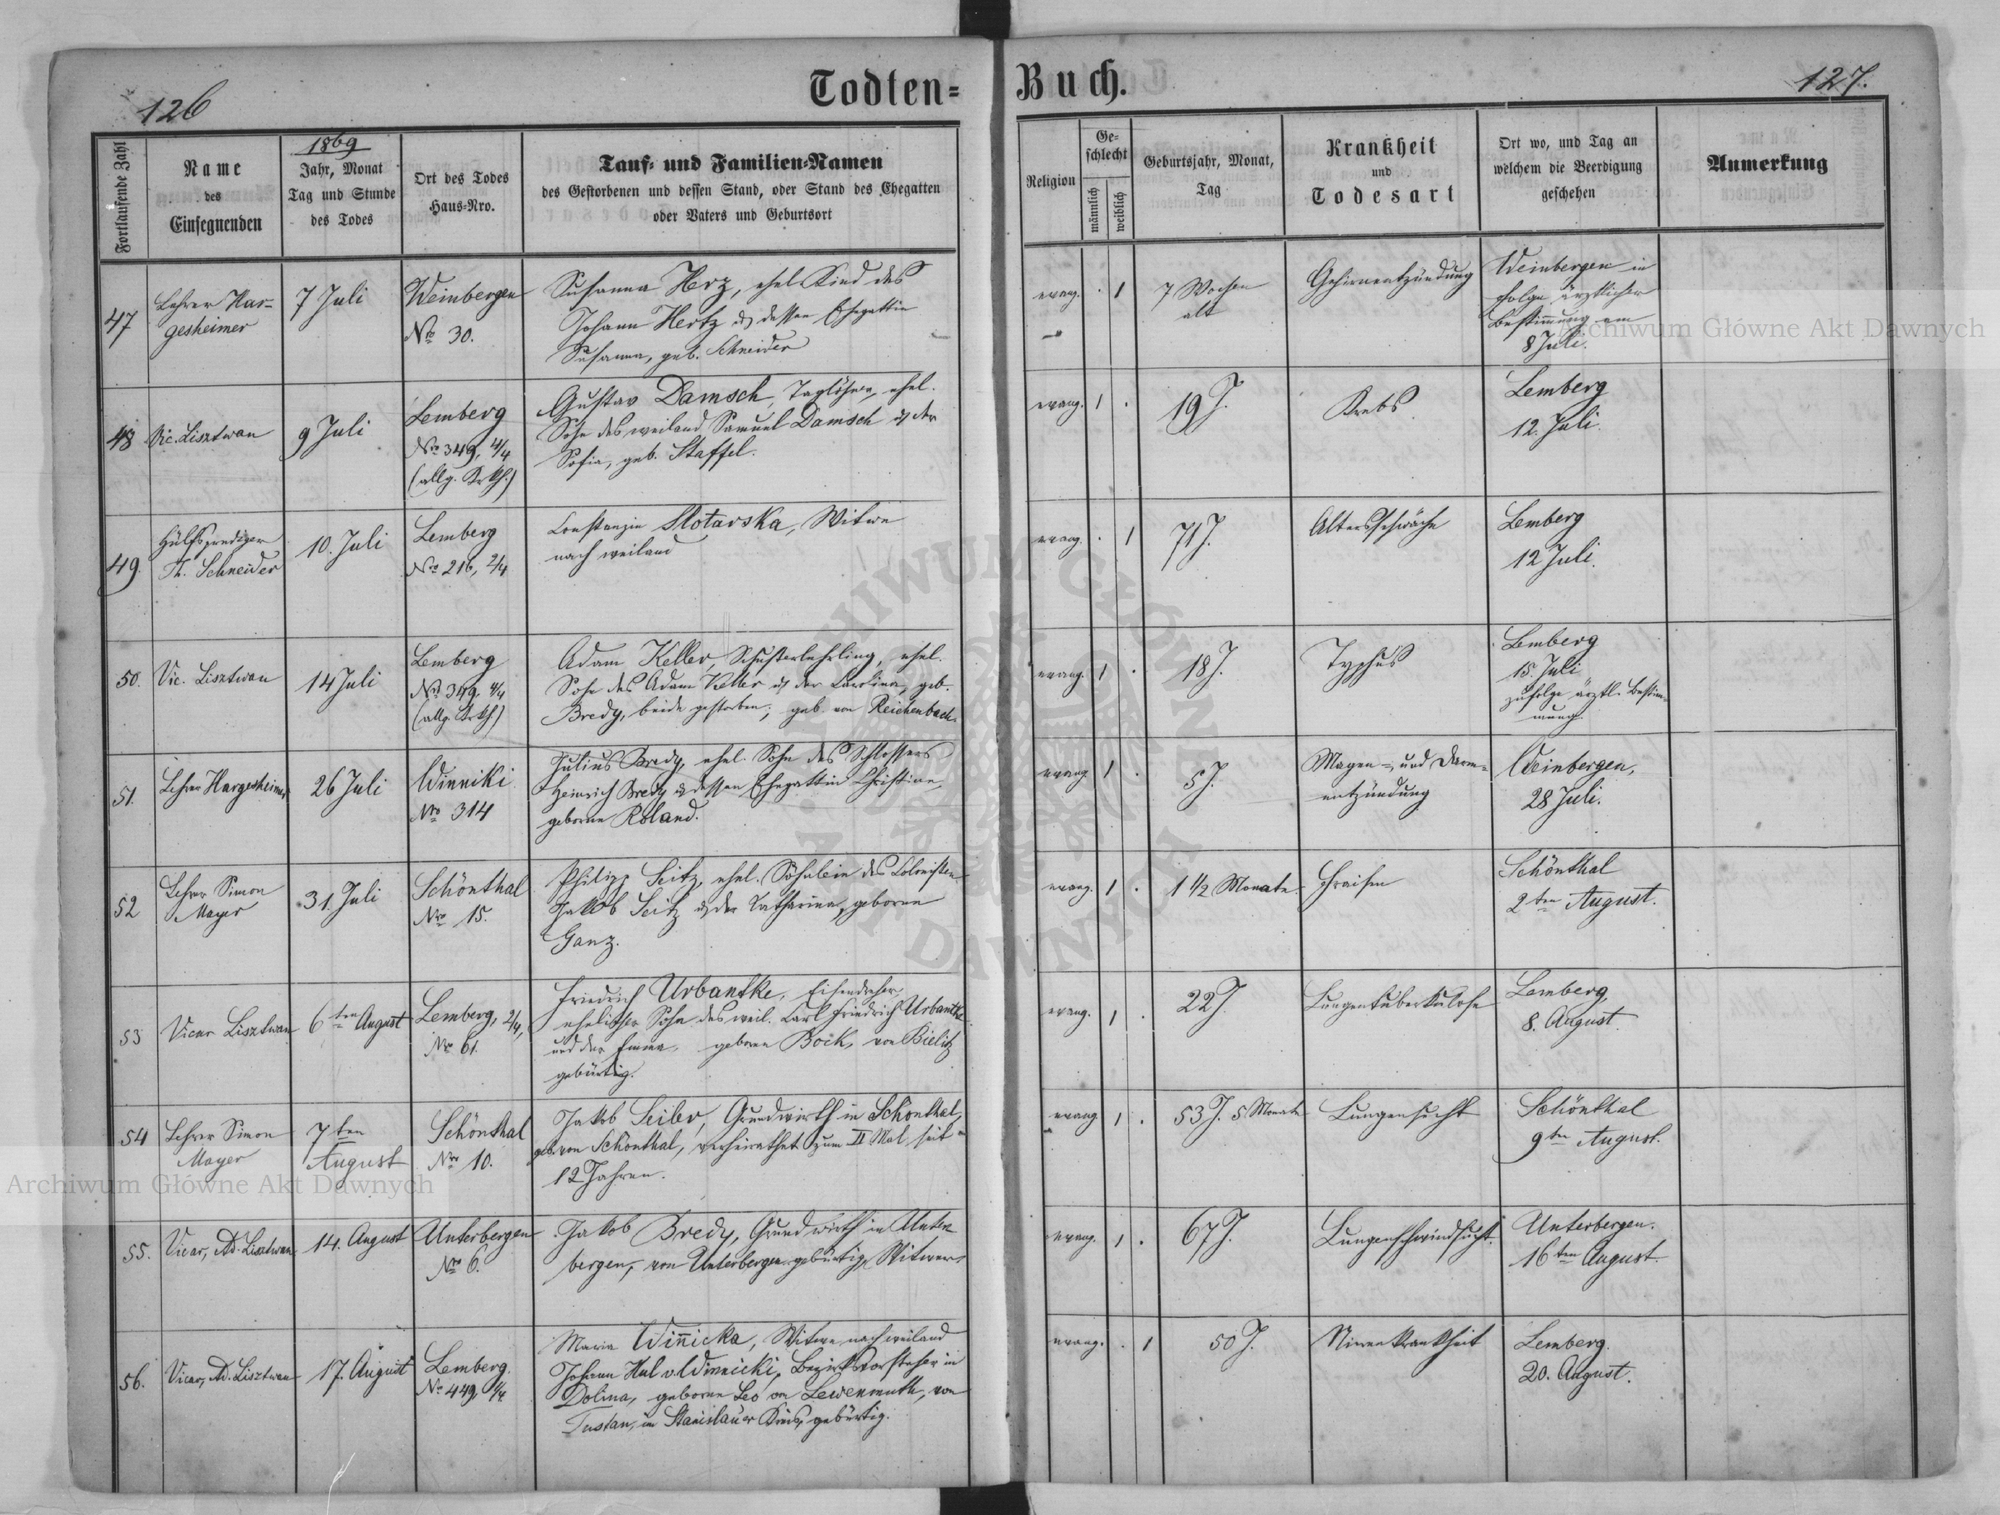 126
Todten-
Buch.
127.
Fortlaufende Zahl
Name
des
Einsegnenden
1869
Jahr, Monat
Tag und Stunde
des Todes
Ort des Todes
Haus-Nro.
Tauf- und Familien-Namen
des Gestorbenen und dessen Stand, oder Stand des Ehegatten
oder Vaters und Geburtsort
Religion
Ge-
schlecht
männlich
weiblich
Geburtsjahr, Monat,
Tag
Krankheit
und
Todesart
Ort wo, und Tag an
welchem die Beerdigung
geschehen
Anmerkung
47
Lehrer Har-
gesheimer
7 Juli
Weinbergen
No 30.
Susanna Herz, ehel. Kind des
Johann Hertz & dessen Ehegattin
Susanna, geb. Schneider
evang.
1
7 Wochen
alt
Gehirnentzündung
Weinbergen in
folge ärztlicher
Bestimmung am
8 Juli.
48
Vic. Lisztwan
9 Juli
Lemberg
No 349, 4/4
(allg. Krkh.)
Gustav Damsch, Taglöhner, ehel.
Sohn des weiland Samuel Damsch & der
Sofia, geb. Staffel.
evang.
1
19 J.
Krebs
Lemberg
12. Juli.
49
Hülfsprediger
Th. Schneider
10. Juli
Lemberg
No 216, 2/4
Constanzia Slotarska, Witwe
nach weiland
evang.
1
71 J.
Altersschwäche
Lemberg
12 Juli.
50.
Vic. Lisztwan
14 Juli
Lemberg
No 349 4/4
(allg. Krkh)
Adam Keller, Schusterlehrling, ehel.
Sohn des Adam Keller & der Carolina, geb.
Bredy, beide gestorben; geb. von Reichenbach.
evang.
1
18 J.
Typhus
Lemberg
15. Juli
zufolge ärztl. Bestim-
mung.
51.
Lehrer Hargesheimer
26 Juli
Winniki
No 314
Julius Bredy, ehel. Sohn des Schlossers
Heinrich Bredy & dessen Ehegattin Christine,
geborne Roland.
evang
1
5 J.
Magen-, und Darm-
entzündung
Weinbergen,
28 Juli.
52
Lehrer Simon
Mayer
31. Juli
Schönthal
No 15.
Philipp Seitz, ehel. Söhnlein des Colonisten
Jakob Seitz & der Catharina, geborne
Ganz.
evang.
1
1 1/2 Monate.
Fraisen
Schönthal
2ten August.
53
Vicar Lisztwan
6ten August
Lemberg, 2/4,
No 61.
Friedrich Urbantke, Eisendreher,
ehelicher Sohn des weil. Carl Friedrich Urbantke
und der Emma, geborne Bock, von Bielitz
gebürtig.
evang.
1
22 J.
Lungentuberkulose
Lemberg
8. August.
54
Lehrer Simon
Mayer
7ten
August
Schönthal
No 10.
Jakob Seiler, Grundwirth in Schönthal,
geb. von Schönthal, verheirathet zum II Mal seit
12 Jahren.
evang
1
53 J. 5 Monate
Lungensucht
Schönthal
9ten August.
55.
Vicar, Ad. Lisztwan
14. August
Unterbergen
No 6.
Jakob Bredy, Grundwirth in Unter
bergen, von Unterbergen gebürtig, Witwer.
evang.
1
67 J.
Lungenschwindsucht.
Unterbergen.
16ten August.
56.
Vicar, Ad. Lisztwan
17. August
Lemberg.
No 449 4/4
Maria Winnicka, Witwe nach weiland
Johann v. Winnicki, Bezirksvorsteher in
Dolina, geborne Leo von Lewenmuth, von
Tustan, im Stanislauer Kreis, gebürtig.
evang.
1
50 J.
Nierenkrankheit
Lemberg.
20. August.
Archiwum Główne Akt Dawnych
Archiwum Główne Akt Dawnych
ARCHIWUM GŁÓWNE AKT DAWNYCH